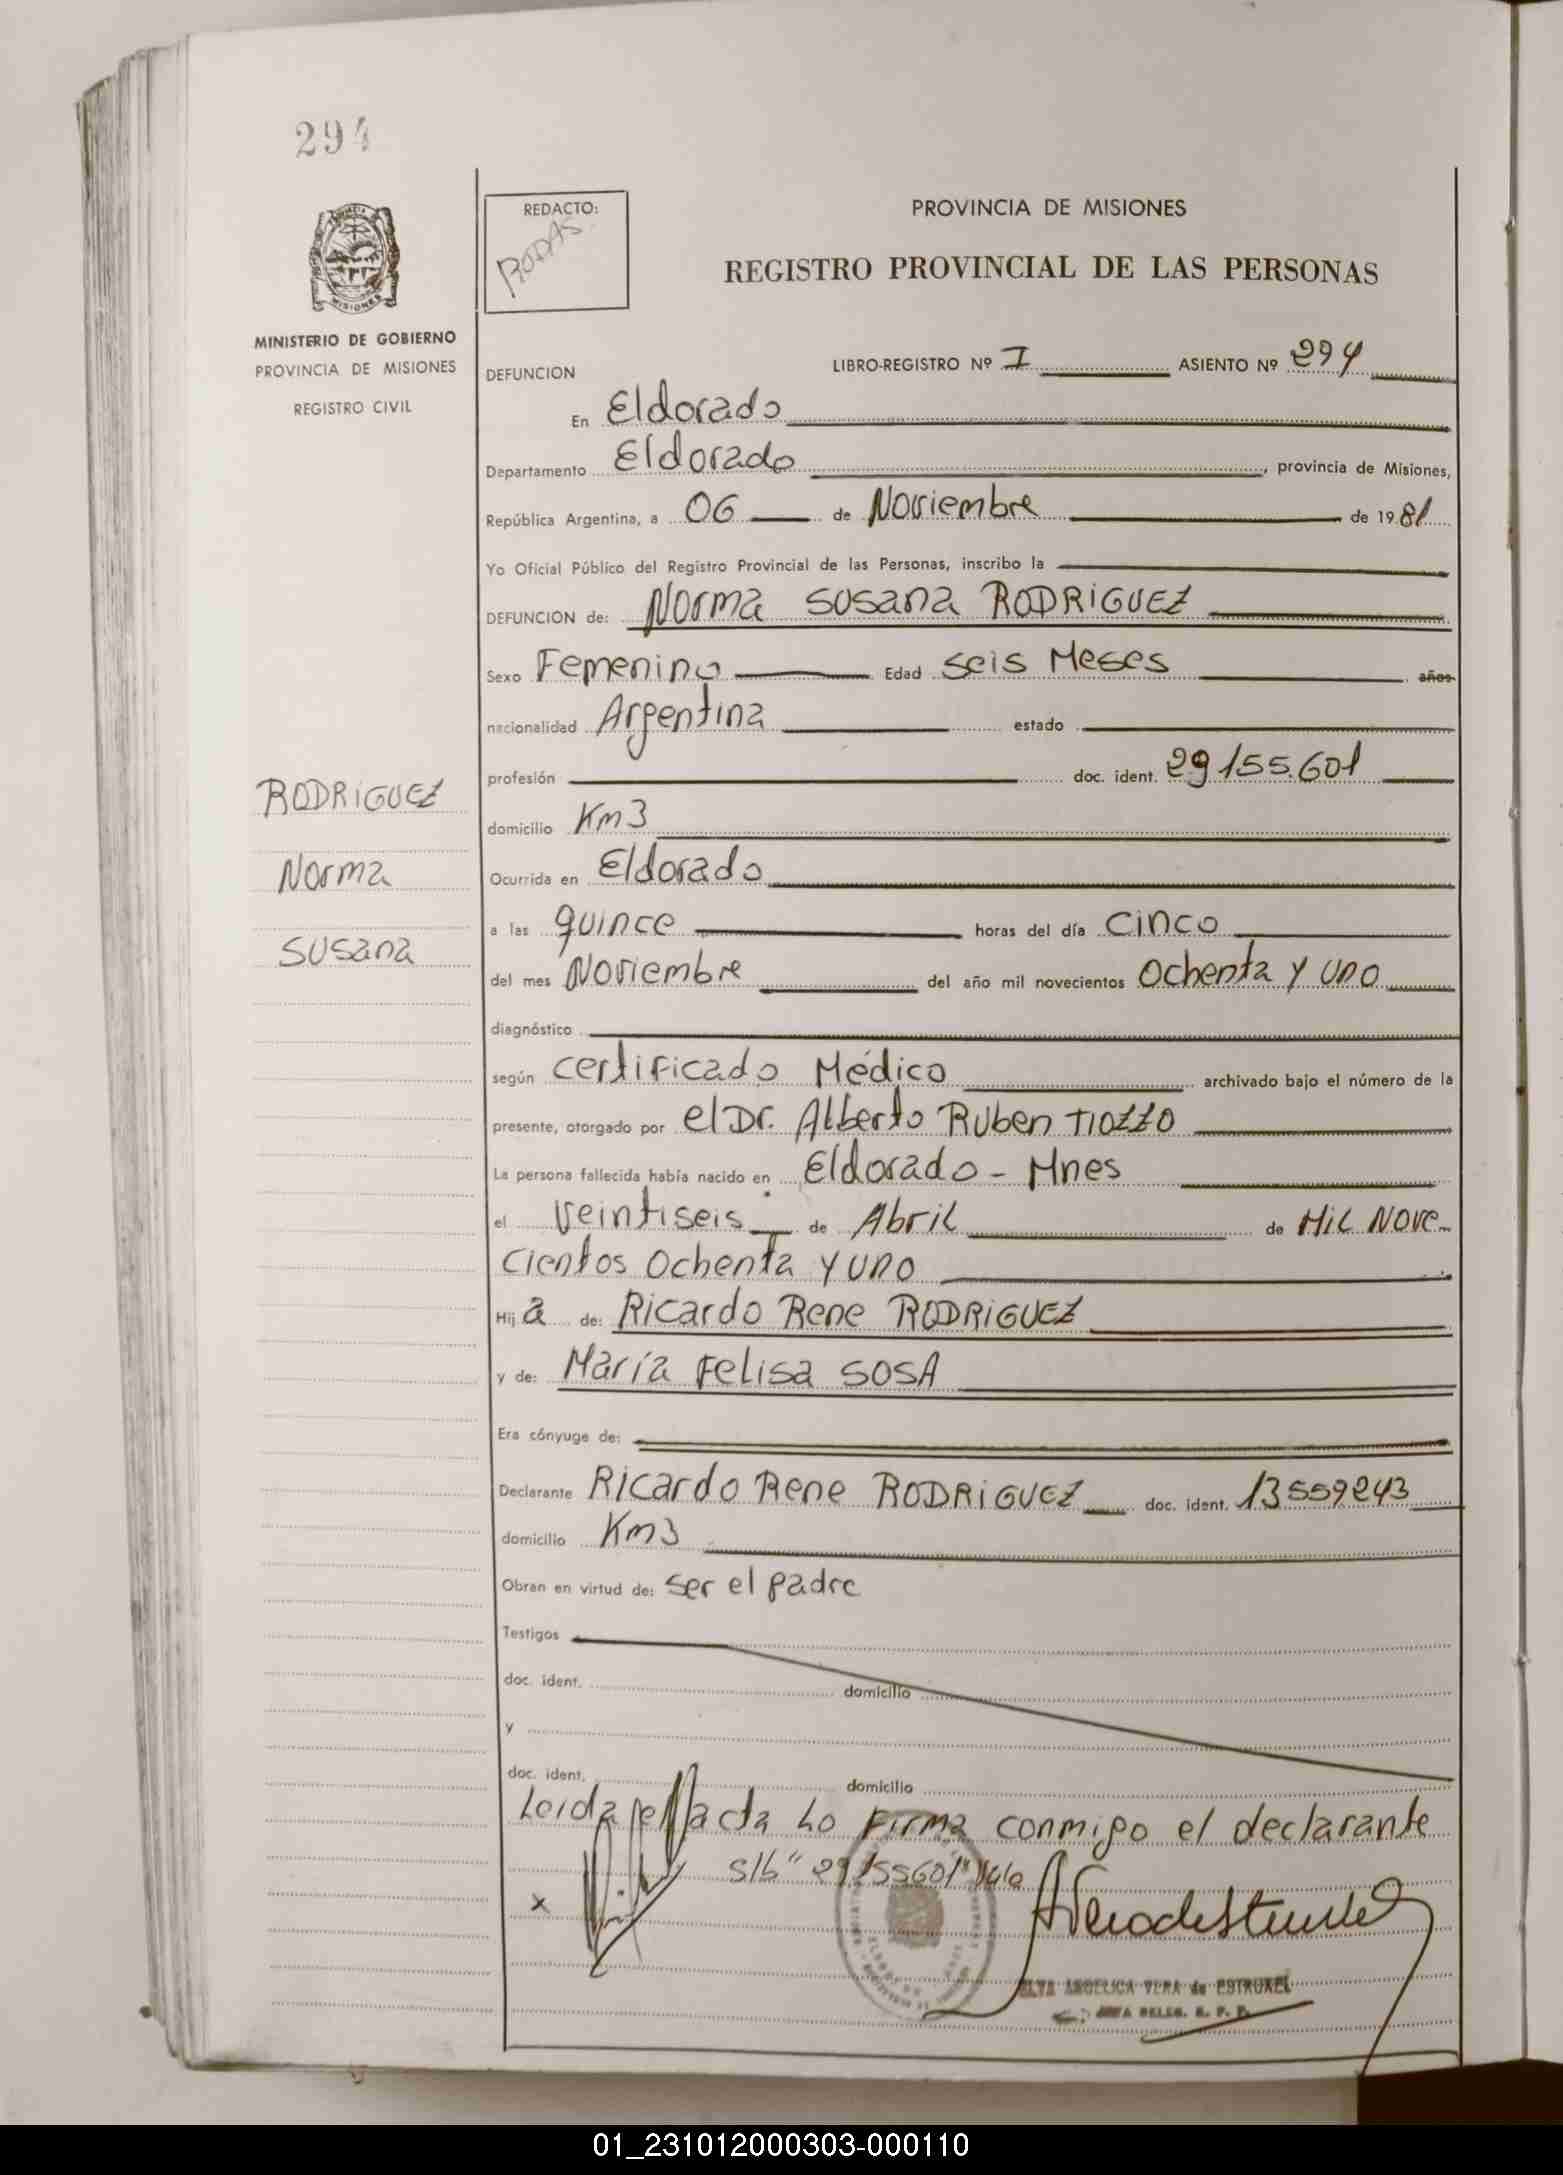 294
REDACTO:
RODAS
PROVINCIA DE MISIONES
REGISTRO PROVINCIAL DE LAS PERSONAS
MINISTERIO DE GOBIERNO
PROVINCIA DE MISIONES
REGISTRO CIVIL
DEFUNCION
LIBRO-REGISTRO Nº I ASIENTO Nº 294
En Eldorado
Departamento Eldorado, provincia de Misiones,
República Argentina, a 06 de Noviembre de 1981
Yo Oficial Público del Registro Provincial de las Personas, inscribo la
DEFUNCION de: Norma Susana RODRIGUEZ
Sexo Femenino Edad Seis Meses años
nacionalidad Argentina estado
profesión doc. ident. 29155.601
RODRIGUEZ
Norma
Susana
domicilio Km3
Ocurrida en Eldorado
a las quince horas del día cinco
del mes Noviembre del año mil novecientos Ochenta y uno
diagnóstico
según certificado Médico archivado bajo el número de la
presente, otorgado por el Dr. Alberto Ruben TIOZZO
La persona fallecida había nacido en Eldorado - Mnes
el Veintiseis de Abril de Mil Nove-
cientos Ochenta y uno
Hij a de: Ricardo Rene RODRIGUEZ
y de: María Felisa SOSA
Era cónyuge de:
Declarante Ricardo Rene RODRIGUEZ doc. ident. 13559243
domicilio Km3
Obran en virtud de: ser el padre
Testigos
doc. ident. domicilio
y
doc. ident. domicilio
Leida el acta Lo Firma conmigo el declarante
S/b" 29155601" Vale
x
ELVA ANGELICA VERA de ESTRUXEL
01_231012000303-000110